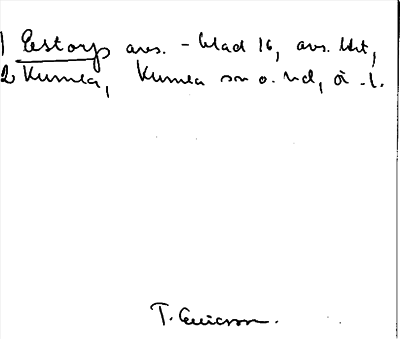 1 Estorp avs. - blad 16, avs. Ust,
2 Kumla, Kumla sn o. hd, Ö-l.
T. Ericsson.